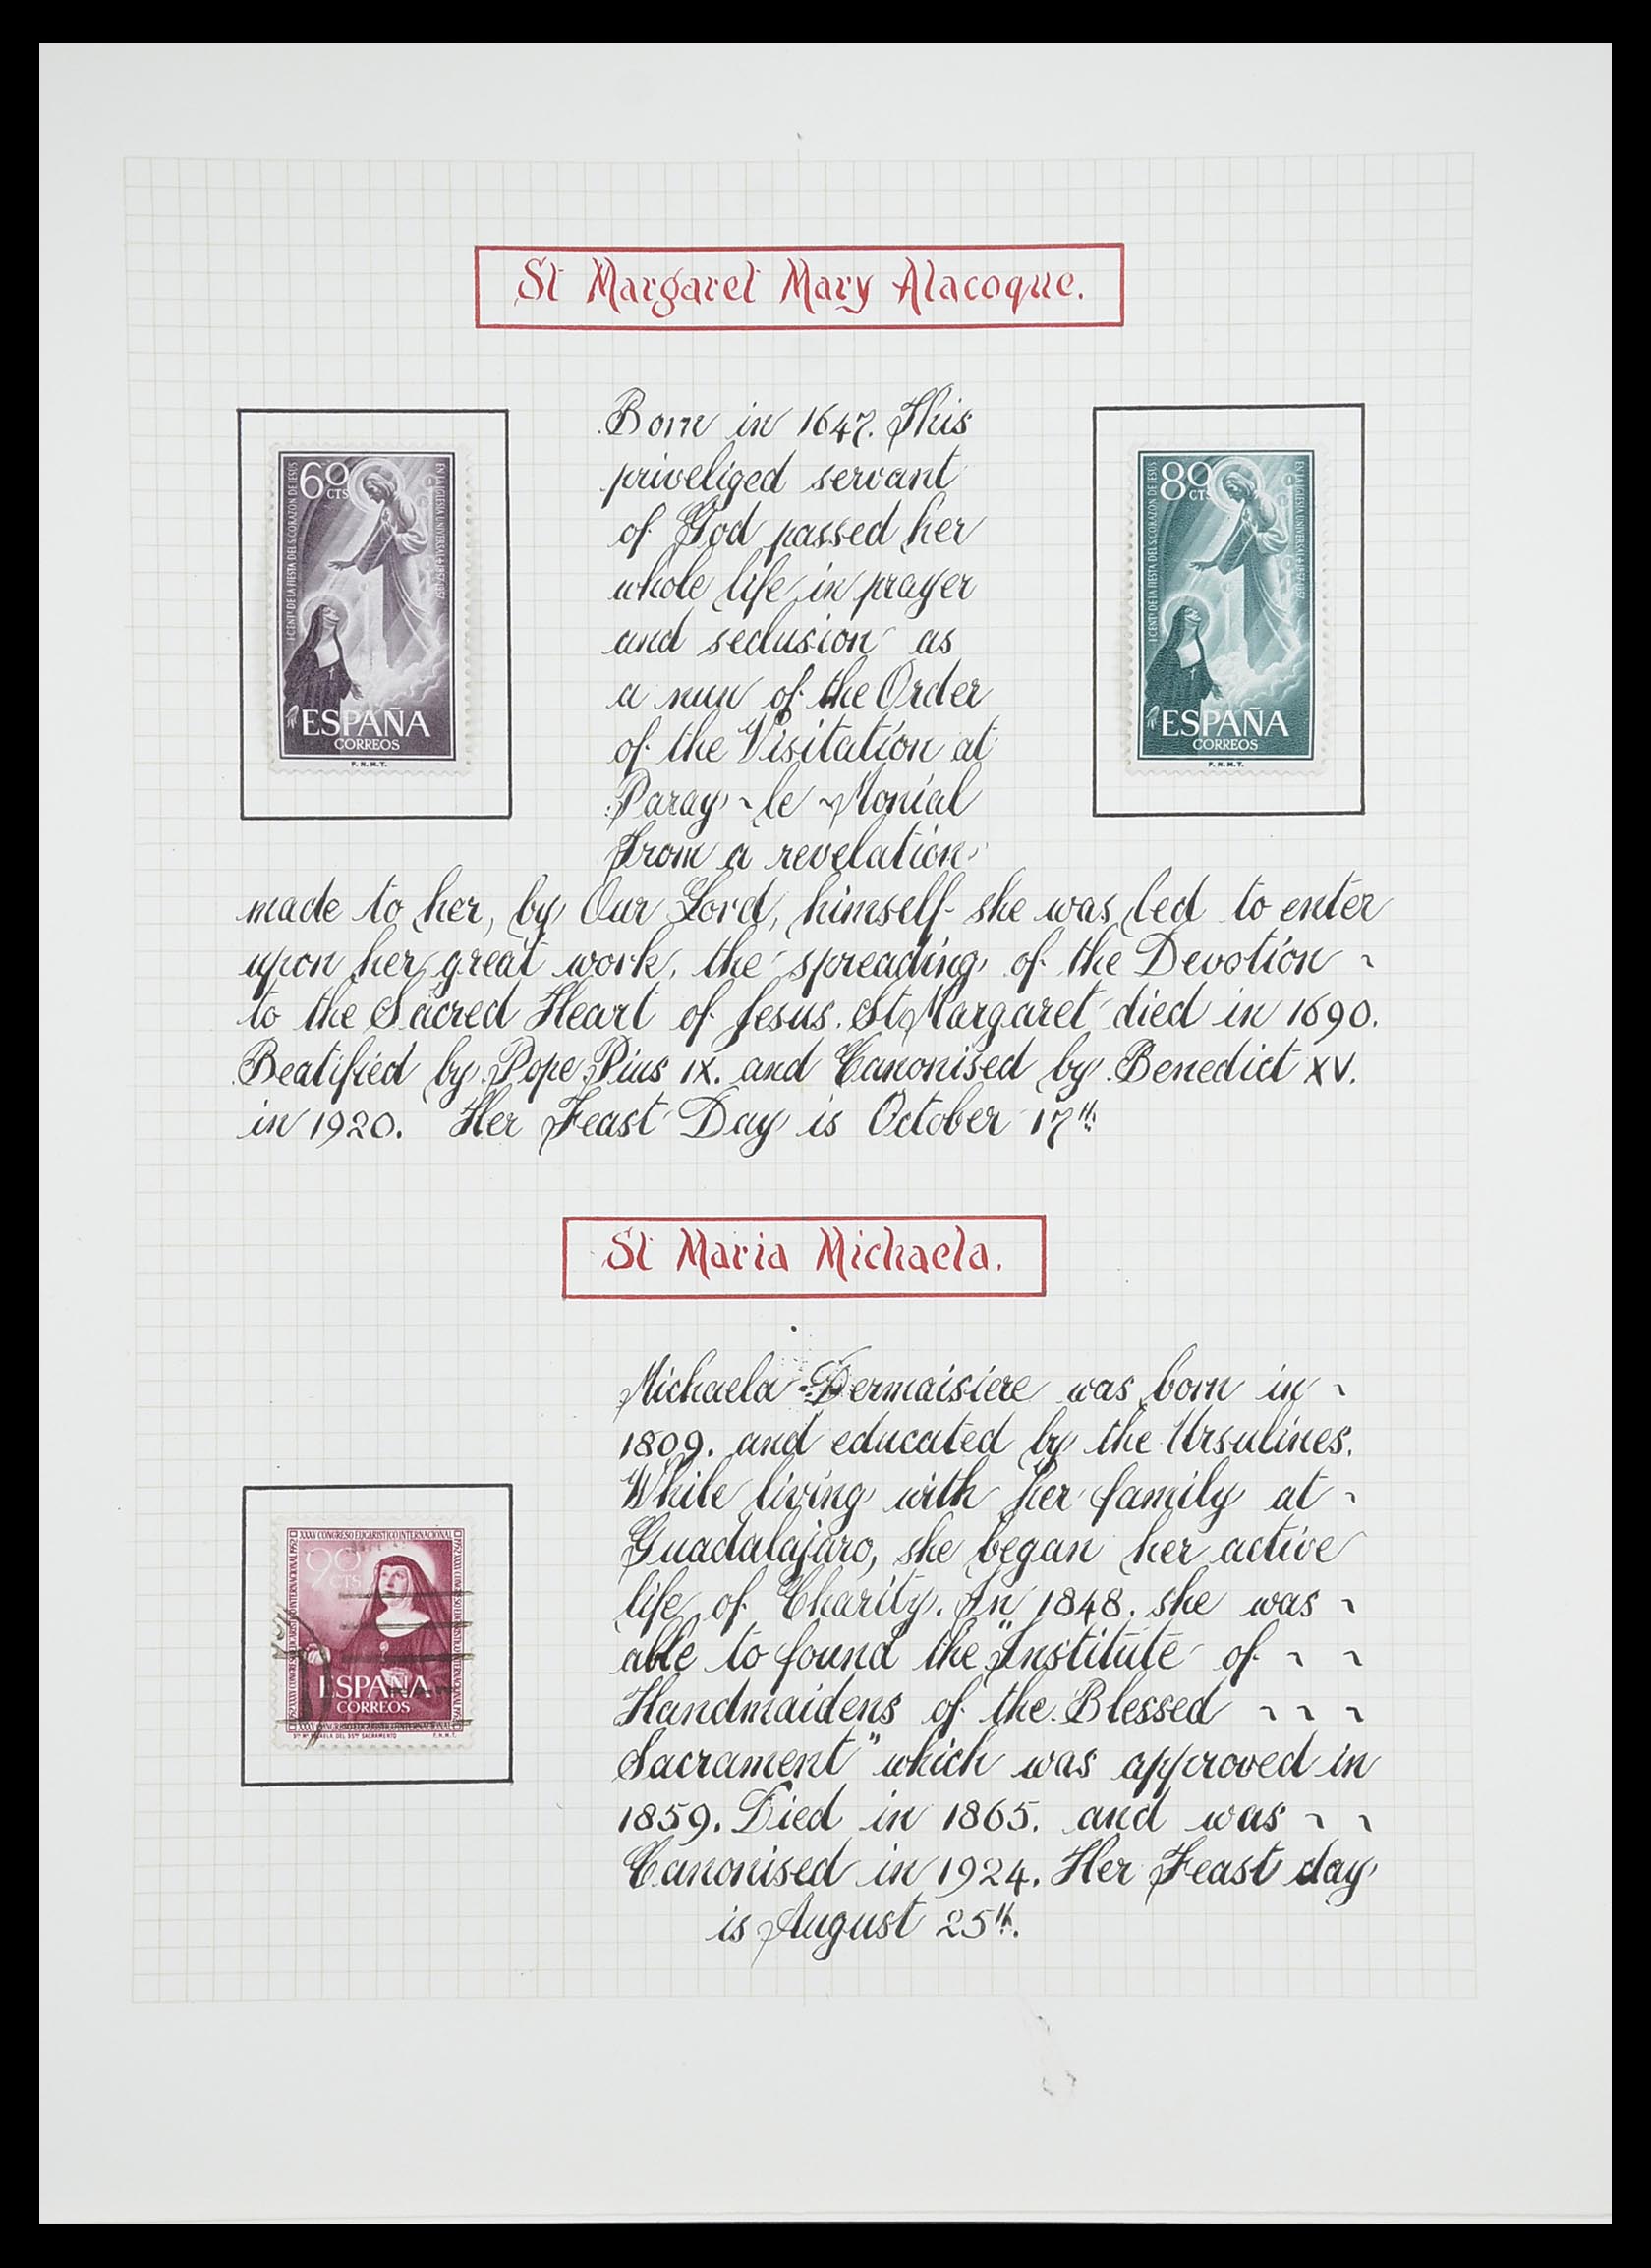 St Margaret Mary Alacoque.
Born in 1647. This
priveliged servant
of God passed her
whole life in prayer
and seclusion as
a nun of the Order
of the Visitation at
Paray ~ le ~ Monial
From a revelation
made to her, by Our Lord, himself she was led to enter
upon her great work, the spreading of the Devotion ~
to the Sacred Heart of Jesus. St Margaret died in 1690.
Beatified by Pope Pius IX. and Canonised by Benedict XV.
in 1920. Her Feast Day is October 17th
60 CTS
I CENTº DE LA FIESTA DEL S. CORAZON DE JESUS
EN LA IGLESIA UNIVERSAL 1857-1957
ESPAÑA
CORREOS
F.N.M.T.
80 CTS
I CENTº DE LA FIESTA DEL S. CORAZON DE JESUS
EN LA IGLESIA UNIVERSAL 1857-1957
ESPAÑA
CORREOS
F.N.M.T.
St Maria Michaela.
Michaela Dermaisiere was born in ~
1809. and educated by the Ursulines.
While living with her family at ~
Guadalajaro, she began her active
life of Charity. In 1848. she was ~
able to found the "Institute of ~ ~
Handmaidens of the Blessed ~ ~ ~
Sacrament" which was approved in
1859. Died in 1865. and was ~ ~
Canonised in 1924. Her Feast day
is August 25th.
XXXV CONGRESO EUCARISTICO INTERNACIONAL
90 CTS
ESPAÑA
CORREOS
F.N.M.T.